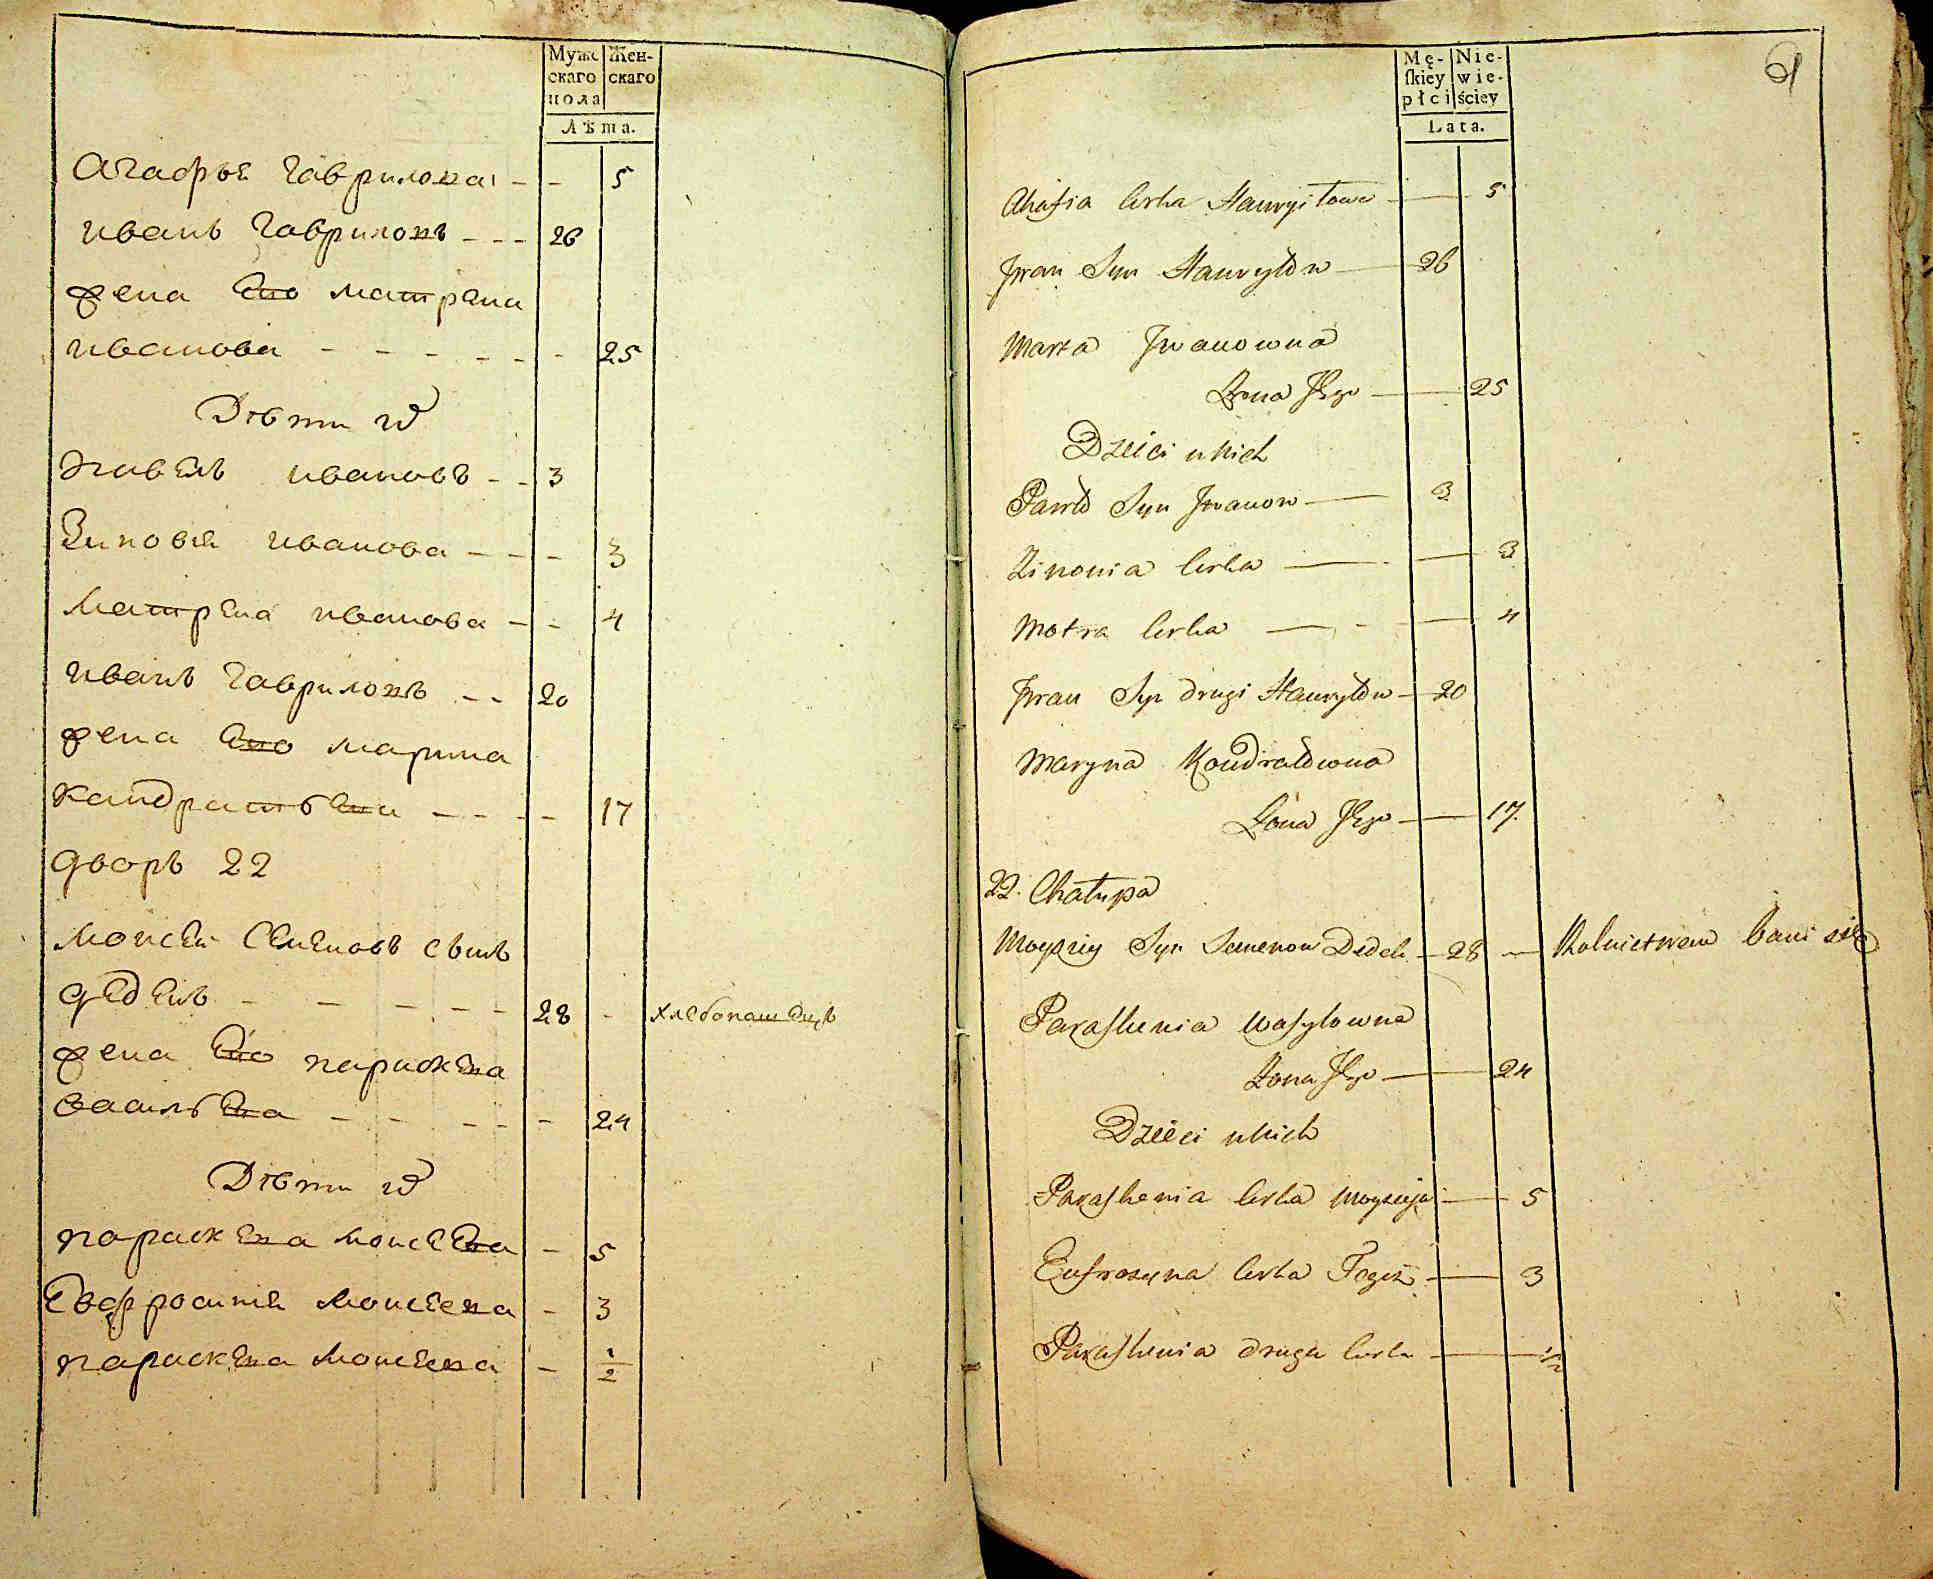 Мужс Жен-
скаго скаго
пола
Лѣта.
Агафья Гаврилова - - 5
иванъ Гавриловъ - - - 26
жена Ево матрена
иванова - - - - - - 25
Дѣти их
Павелъ ивановъ - - 3
Зиновья иванова - - - 3
Матрена иванова - - 4
иванъ Гавриловъ - - 20
жена Ево марина
Кандратьева - - - - 17
дворъ 22
Моисей Семеновъ сынъ
дедель - - - - - 28 - хлебопашецъ
жена Ево параскева
васильева - - - - - 24
Дѣти их
параскева Моисеева - 5
Евфросинья Моисеева - 3
параскева Моисеева - 1/2
Mę- Nie-
skiey wie-
płci ściey
Lata.
61
Ahafia Corka Hawryłowa 5
Jwan Syn Hawryłow 26
Marta Jwanowna
Żona Jego 25
Dzieci u Nich
Paweł Syn Jwanow 3
Zinowia Corka 3
Motra Corka 4
Jwan Syn drugi Hawryłow 20
Maryna Kondratowna
Żona Jego 17
22. Chałupa
Moyziey Syn Semenow Dedel 28 Rolnictwem bawi się
Paraskewia Wasylowna
Żona Jego 24
Dzieci u Nich
Paraskewia Corka Moyzieja 5
Eufrozyna Corka Tegoż 3
Paraskewia druga Corka 1/2